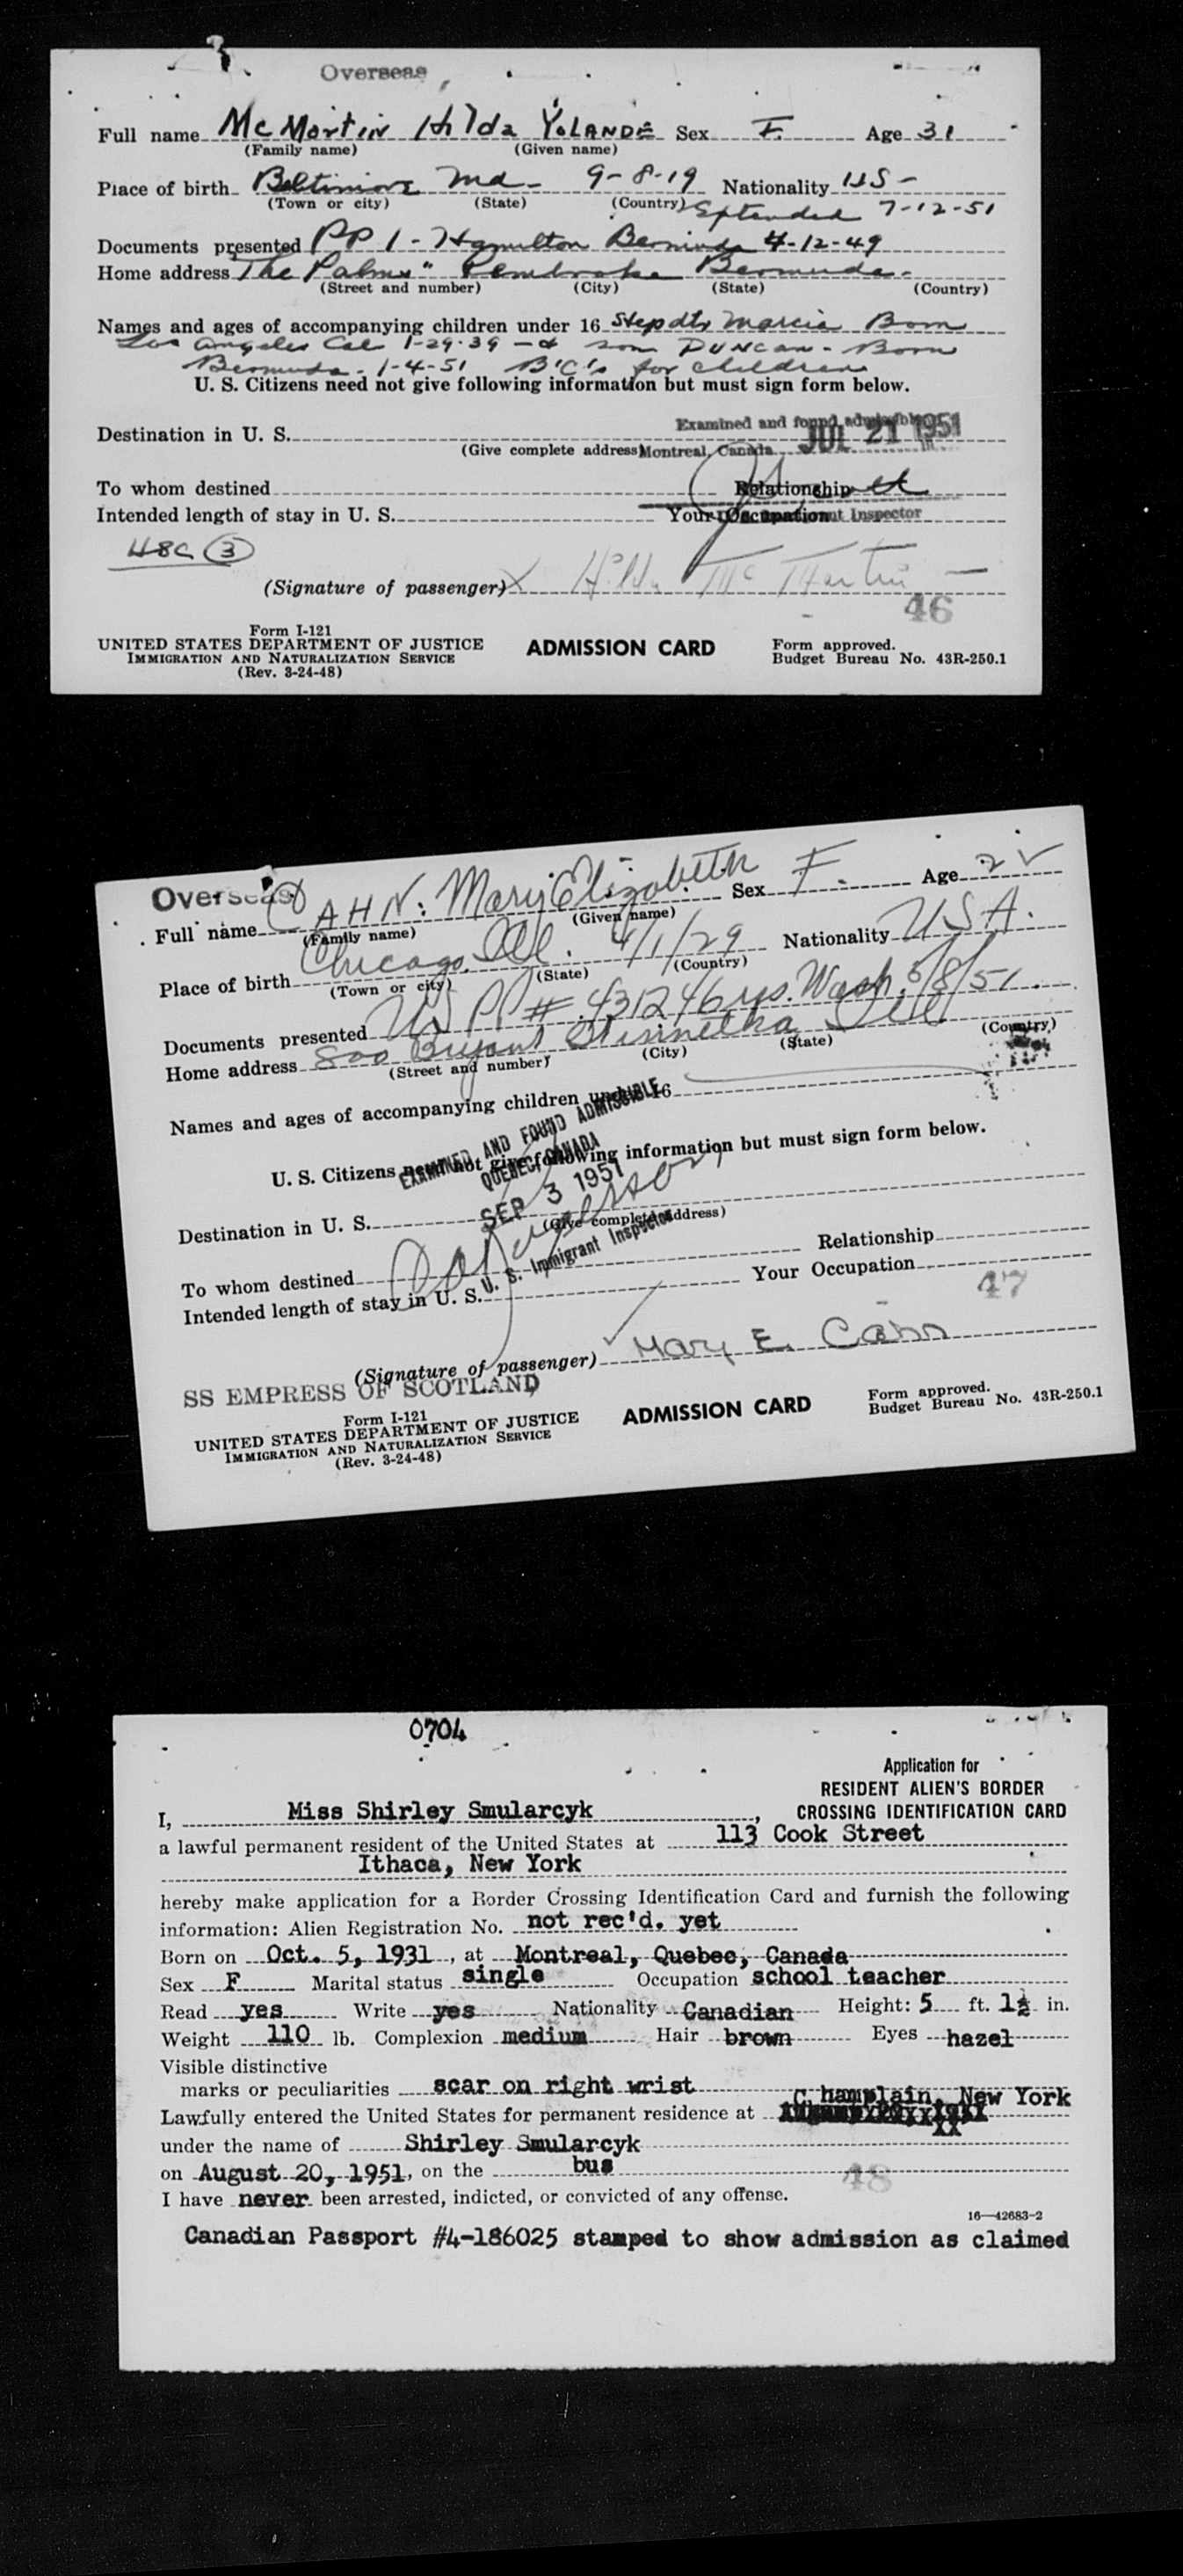 Overseas
Full name McMartin Hilda YOLANDE Sex F. Age 31
(Family name) (Given name)
Place of birth Baltimore Md- 9-8-19 Nationality US-
(Town or city) (State) (Country) Extended 7-12-51
Documents presented PP 1 - Hamilton Bermuda 4-12-49
Home address "The Palms" Pembroke Bermuda-
(Street and number) (City) (State) (Country)
Names and ages of accompanying children under 16 Stepdtr Marcia Born
Los Angeles Cal 1-29-39 - & son DUNCAN - Born
Bermuda - 1-4-51 B'C's for children
U. S. Citizens need not give following information but must sign form below.
Examined and found admissible
Destination in U. S. JUL 21 1951
(Give complete address Montreal, Canada
To whom destined Relationship
Intended length of stay in U. S. Your Occupation Inspector
(3)
(Signature of passenger) X Hilda McMartin
46
Form I-121
UNITED STATES DEPARTMENT OF JUSTICE ADMISSION CARD Form approved.
IMMIGRATION AND NATURALIZATION SERVICE Budget Bureau No. 43R-250.1
(Rev. 3-24-48)
Overseas
Full name CAHN. Mary Elizabeth Sex F. Age 2
(Family name) (Given name)
Place of birth Chicago Ill. 4/1/29 Nationality USA.
(Town or city) (State) (Country)
Documents presented US PP # 431246 Wash. 5/8/51.
Home address 800 Bryant Winnetka Ill
(Street and number) (City) (State) (Country)
Names and ages of accompanying children under 16
EXAMINED AND FOUND ADMISSIBLE
QUEBEC, CANADA
U. S. Citizens need not give following information but must sign form below.
SEP 3 1951
Destination in U. S.
(Give complete address)
U. S. Immigrant Inspector
To whom destined Relationship
Intended length of stay in U. S. Your Occupation
47
(Signature of passenger) Mary E. Cahn
SS EMPRESS OF SCOTLAND
Form I-121
UNITED STATES DEPARTMENT OF JUSTICE ADMISSION CARD Form approved.
IMMIGRATION AND NATURALIZATION SERVICE Budget Bureau No. 43R-250.1
(Rev. 3-24-48)
0704
Application for
RESIDENT ALIEN'S BORDER
CROSSING IDENTIFICATION CARD
I, Miss Shirley Smularcyk,
a lawful permanent resident of the United States at 113 Cook Street
Ithaca, New York
hereby make application for a Border Crossing Identification Card and furnish the following
information: Alien Registration No. not rec'd. yet
Born on Oct. 5, 1931, at Montreal, Quebec, Canada
Sex F Marital status single Occupation school teacher
Read yes Write yes Nationality Canadian Height: 5 ft. 1½ in.
Weight 110 lb. Complexion medium Hair brown Eyes hazel
Visible distinctive
marks or peculiarities scar on right wrist
Lawfully entered the United States for permanent residence at Champlain, New York
under the name of Shirley Smularcyk
on August 20, 1951, on the bus
48
I have never been arrested, indicted, or convicted of any offense.
16—42683-2
Canadian Passport #4-186025 stamped to show admission as claimed